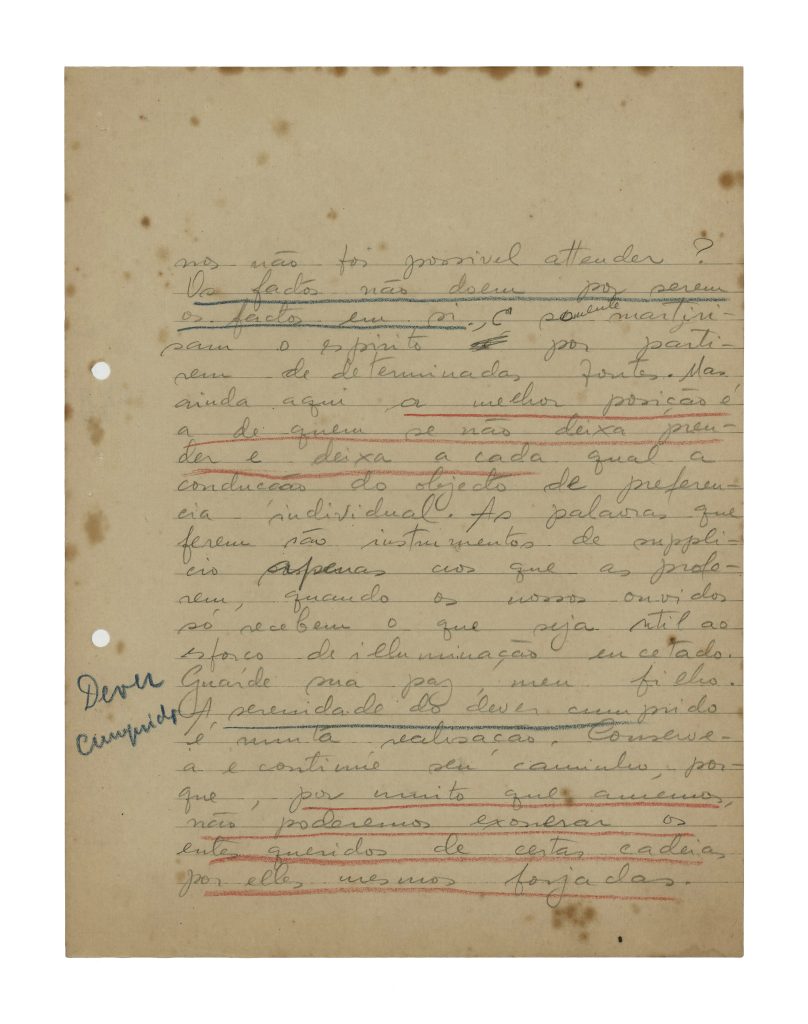 nos não foi possivel attender?
Os factos não doem por serem
os factos em si., e somente martyri-
sam o espirito por parti-
rem de determinadas fontes. Mas
ainda aqui a melhor posição é
a de quem se não deixa pren-
der e deixa a cada qual a
conducção do objecto de preferen-
cia individual. As palavras que
ferem são instrumentos de suppli-
cio apenas aos que as profe-
rem, quando os nossos ouvidos
só recebem o que seja util ao
esforço de illuminação encetado.
Guarde sua paz, meu filho.
A serenidade do dever cumprido
é muita realisação. Conserve-
a e continue seu caminho, por-
que, por muito que amemos,
não poderemos exonerar os
entes queridos de certas cadeias
por elles mesmos forjadas.
Dever
Cumprido